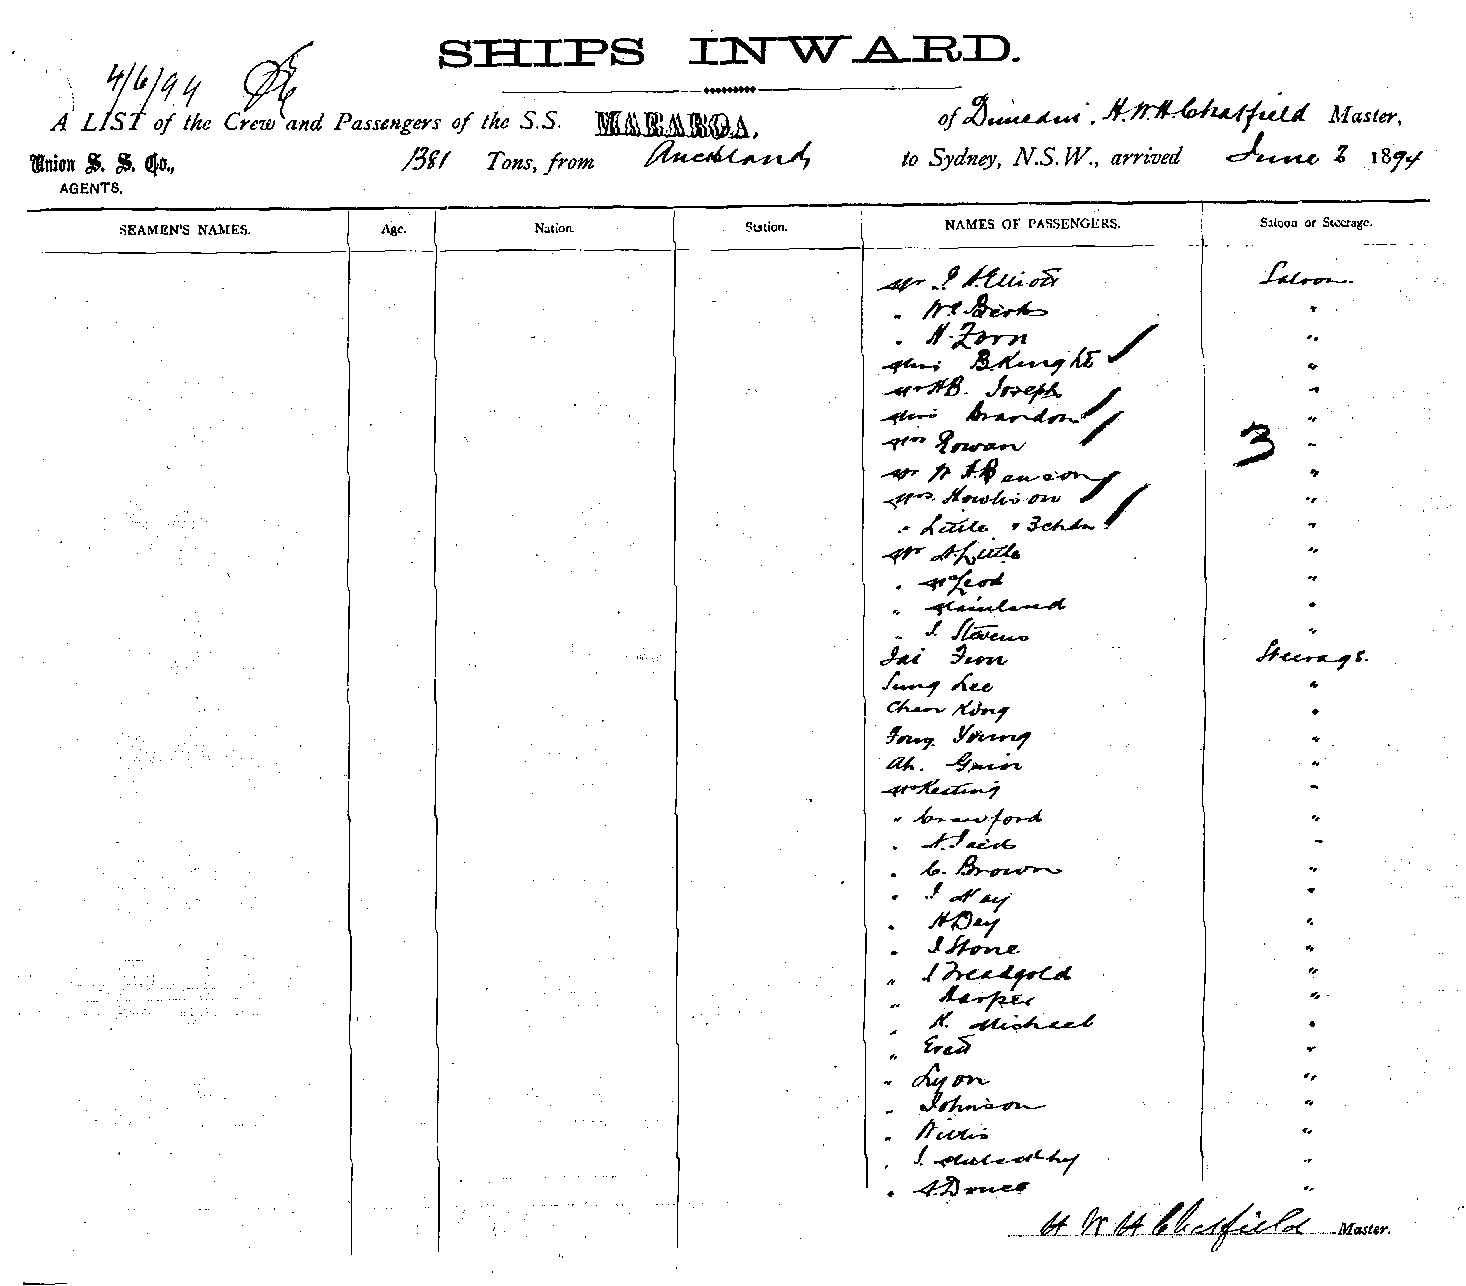 SHIPS INWARD.
4/6/94
A LIST of the Crew and Passengers of the S.S. MARAROA, of Dunedin, H.W.H Chatfield Master,
Union S. S. Co., 1381 Tons, from Auckland to Sydney, N.S.W., arrived June 2 1894
AGENTS.
SEAMEN'S NAMES. Age. Nation. Station. NAMES OF PASSENGERS. Saloon or Steerage.
Mr J H Elliott Saloon.
" "
" H. Zorn "
Miss B. Knight "
Mr H B. Joseph "
Miss Brandon "
Mrs Rowan " 3
Mr W H Benson "
Mrs. Howlison "
" Little & 3 chdn "
Mr A. Little "
" McLeod "
" Mainland "
" J. Stevens "
Jai Fron Steerage.
Sung Lee "
Chan King "
Fong Young "
Ah. Guin "
Mr Keating "
" Crawford "
" "
" C. Brown "
" J Hay "
" H Day "
" J Stone "
" J Treadgold "
" Harper "
" K. Michael "
" "
" Lyon "
" Johnson "
" Willis "
" J. "
" "
H W H Chatfield Master.